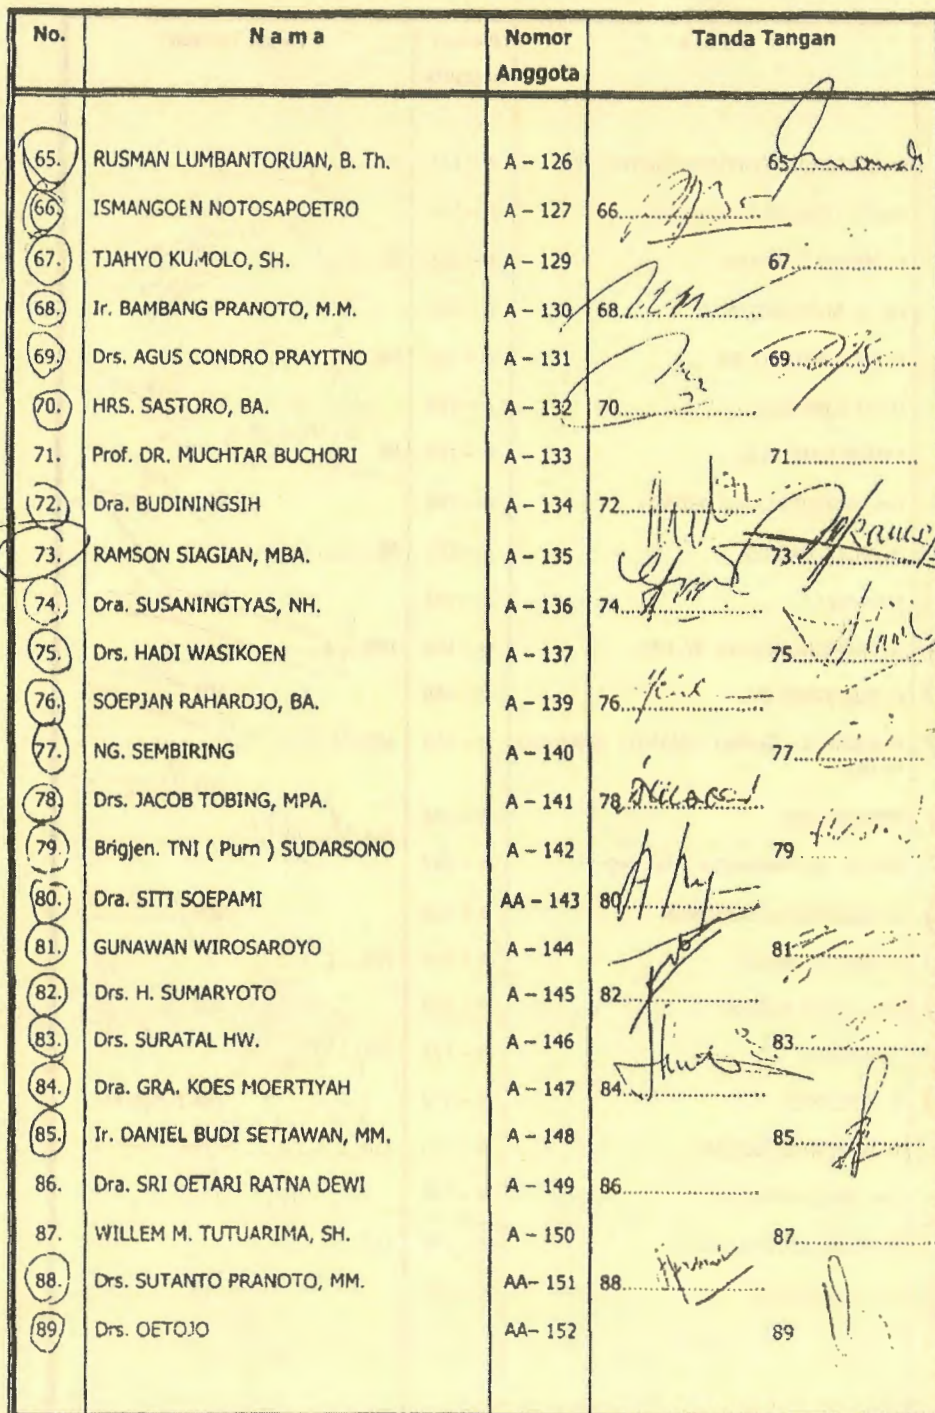 No. Nama Nomor Anggota Tanda Tangan
65. RUSMAN LUMBANTORUAN, B. Th. A – 126 65
66. ISMANGOEN NOTOSAPOETRO A – 127 66
67. TJAHYO KUMOLO, SH. A – 129 67
68. Ir. BAMBANG PRANOTO, M.M. A – 130 68
69. Drs. AGUS CONDRO PRAYITNO A – 131 69
70. HRS. SASTORO, BA. A – 132 70
71. Prof. DR. MUCHTAR BUCHORI A – 133 71
72. Dra. BUDININGSIH A – 134 72
73. RAMSON SIAGIAN, MBA. A – 135 73
74. Dra. SUSANINGTYAS, NH. A – 136 74
75. Drs. HADI WASIKOEN A – 137 75
76. SOEPJAN RAHARDJO, BA. A – 139 76
77. NG. SEMBIRING A – 140 77
78. Drs. JACOB TOBING, MPA. A – 141 78
79. Brigjen. TNI ( Purn ) SUDARSONO A – 142 79
80. Dra. SITI SOEPAMI AA – 143 80
81. GUNAWAN WIROSAROYO A – 144 81
82. Drs. H. SUMARYOTO A – 145 82
83. Drs. SURATAL HW. A – 146 83
84. Dra. GRA. KOES MOERTIYAH A – 147 84
85. Ir. DANIEL BUDI SETIAWAN, MM. A – 148 85
86. Dra. SRI OETARI RATNA DEWI A – 149 86
87. WILLEM M. TUTUARIMA, SH. A – 150 87
88. Drs. SUTANTO PRANOTO, MM. AA– 151 88
89 Drs. OETOJO AA– 152 89